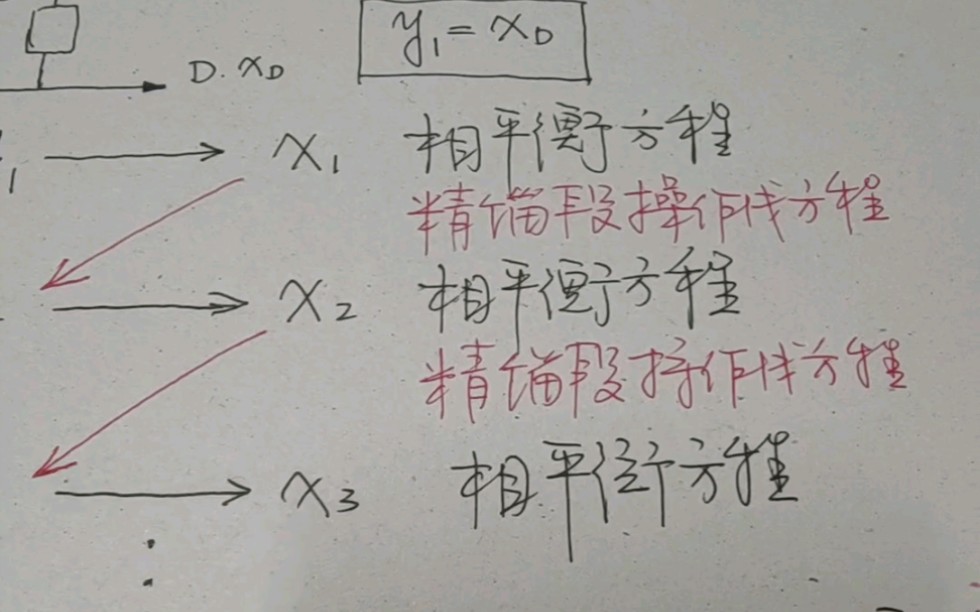 y₁ = x_D
D. x_D
x₁ 相平衡方程
精馏段操作线方程
x₂ 相平衡方程
精馏段操作线方程
x₃ 相平衡方程